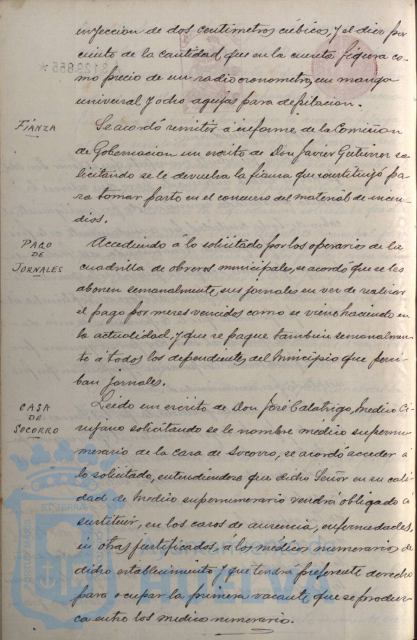 inyeccion de dos centimetros cúbicos, y el diez por
ciento de la cantidad, que en la cuenta figura co-
mo precio de un radiocronometro, un mango
universal y ocho agujas para depilacion.
FIANZA
Se acordó remitir á informe de la Comision
de Gobernacion un escrito de Don Javier Gutierrez so-
licitando se le devuelva la fianza que constituyó pa-
ra tomar parte en el concurso del material de incen-
dios.
PAGO
DE
JORNALES
Accediendo á lo solicitado por los operarios de la
cuadrilla de obreros municipales, se acordó que se les
abonen semanalmente sus jornales en vez de realizar
el pago por meses vencidos como se viene haciendo en
la actualidad, y que se pague tambien semanalmen-
te á todos los dependientes del Municipio que perci-
ban jornales.
CASA
DE
SOCORRO
Leido un escrito de Don José Calatrigo, Medico Ci-
rujano solicitando se le nombre medico supernu-
merario de la Casa de Socorro, se acordó acceder á
lo solicitado, entendiendose que dicho Señor en su cali-
dad de Medico supernumerario vendrá obligado a
sustituir, en los casos de ausencia, enfermedades,
ú otras justificados, á los médicos numerarios de
dicho establecimiento y que tendrá preferente derecho
para ocupar la primera vacante que se produz-
ca entre los medicos numerarios.